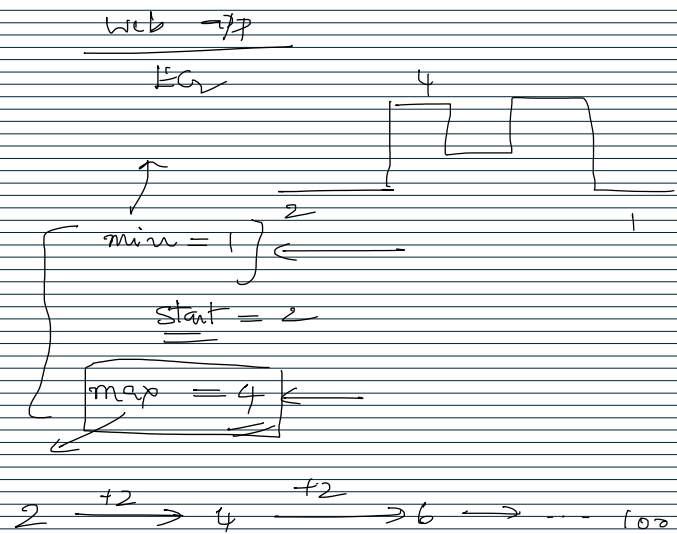 web app
4
2
1
min = 1
start = 2
max = 4
2 +2 → 4 +2 → 6 → .... 100